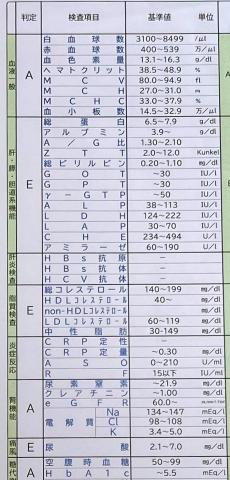 判定 検査項目 基準値 単位
血液一般 A
白血球数 3100~8499 /μl
赤血球数 400~539 万/μl
血色素量 13.1~16.3 g/dl
ヘマトクリット 38.5~48.9 %
MCV 80.0~94.9 fl
MCH 27.0~31.0 m
MCHC 33.0~37.9 %
血小板数 14.5~32.9 万/μl
肝・膵・胆道系機能 E
総蛋白 6.5~7.9 g/dl
アルブミン 3.9~ g/dl
A/G比 1.30~2.10
ZTT 2.0~12.0 Kunkel
総ビリルビン 0.20~1.10 mg/dl
GOT ~30 IU/l
GPT ~30 IU/l
γ-GTP ~50 IU/l
ALP 38~113 IU/l
LDH 124~222 IU/l
LAP 30~70 IU/l
CHE 234~494 U/l
アミラーゼ 60~190 U/l
肝炎検査
HBs抗原 -
HBs抗体 -
HCV抗体 -
脂質検査 E
総コレステロール 140~199 mg/dl
HDLコレステロール 40~ mg/dl
non-HDLコレステロール
LDLコレステロール 60~119 mg/dl
中性脂肪 30-149 mg/dl
炎症反応
CRP定性 -
CRP定量 ~0.30 mg/dl
ASO 0~210 U/ml
RF 15以下 IU/ml
腎機能 A
尿素窒素 ~21.9 mg/dl
クレアチニン ~1.00 mg/dl
eGFR 60.0~
電解質
Na 134~147 mEq/l
Cl 98~108 mEq/l
K 3.4~5.0 mEq/l
痛風 E 尿酸 2.1~7.0 mg/dl
糖代 A
空腹時血糖 50~99 mg/dl
HbA1c ~5.5 %